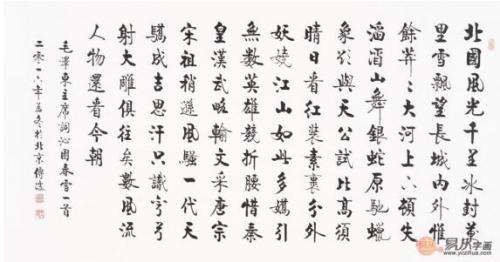 北國風光千里冰封萬
里雪飄望長城內外惟
餘莽々大河上下頓失
滔滔山舞銀蛇原馳蠟
象欲與天公試比高須
晴日看紅裝素裹分外
妖嬈江山如此多嬌引
無數英雄競折腰惜秦
皇漢武略輸文采唐宗
宋祖稍遜風騷一代天
驕成吉思汗只識彎弓
射大雕俱往矣數風流
人物還看今朝
毛澤東主席詞沁園春雪一首
二零一六年孟冬於北京
易从字画
www.yczihua.com